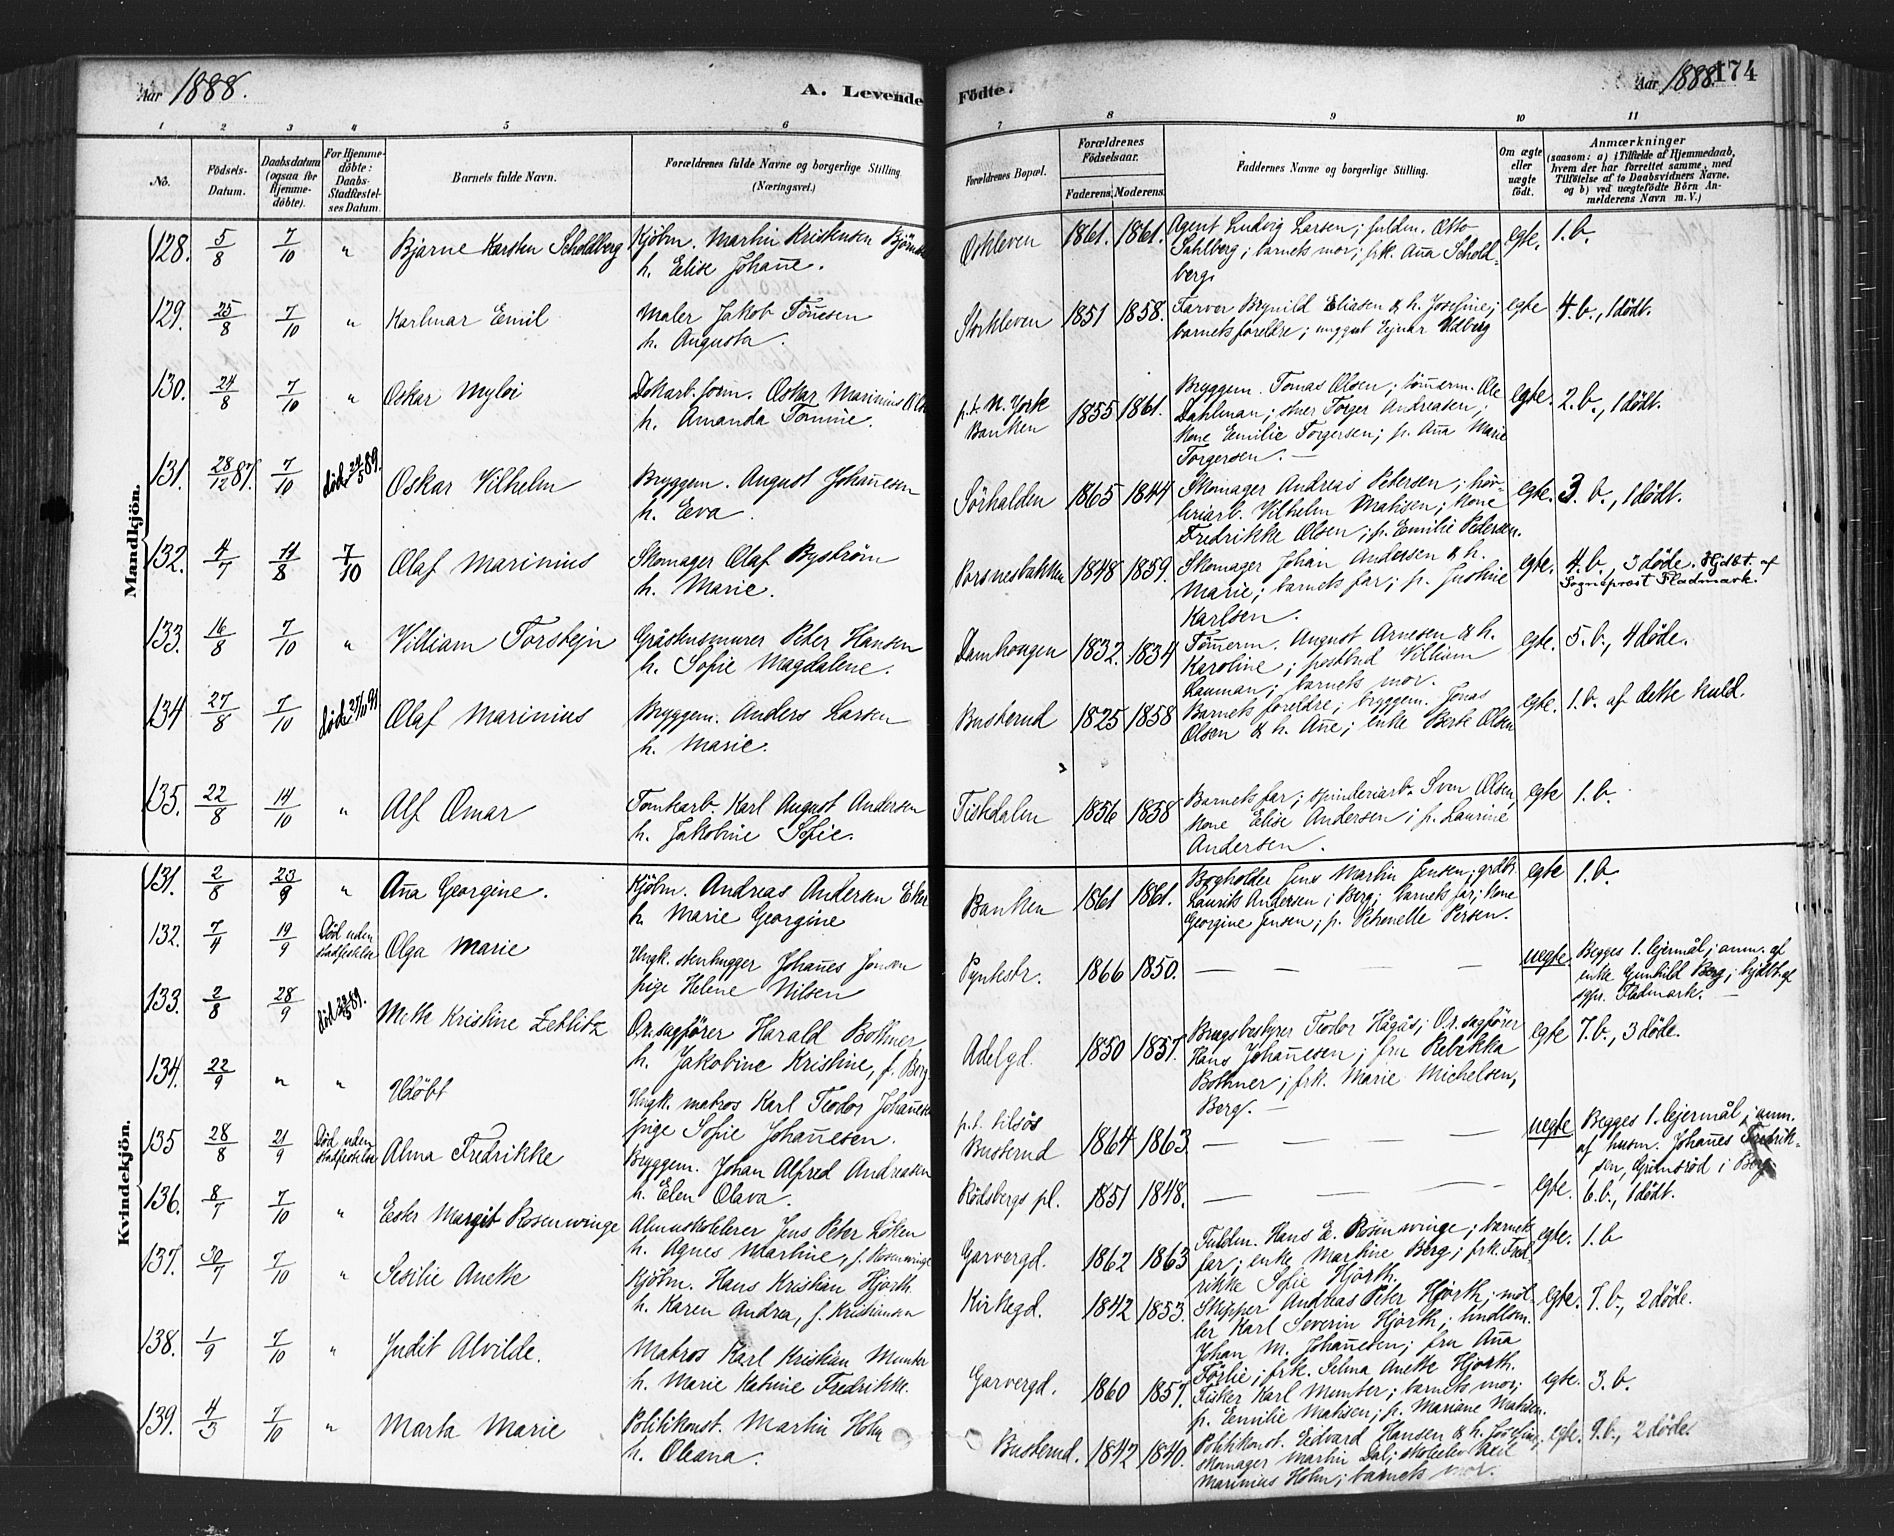 Aar 1888.
A. Levende Födte.
Aar 1888.
174
1 2 3 4 5 6 7 8 9 10 11
No.
Födsels-Datum.
Daabsdatum (ogsaa for Hjemme-döbte).
For Hjemme-döbte: Daabs-Stadfæstel-ses Datum.
Barnets fulde Navn.
Forældrenes fulde Navne og borgerlige Stilling (Næringsvei.)
Forældrenes Bopæl.
Forældrenes Födselsaar.
Faderens. Moderens.
Faddernes Navne og borgerlige Stilling.
Om ægte eller uægte födt.
Anmærkninger
(saasom: a) i Tilfælde af Hjemmedaab, hvem der har forrettet samme, med Tilföielse af to Daabsvidners Navne, og b) ved uægtefödte Börn An-melderens Navn m. V.)
Mandkjön.
128. 5/8 7/10 " Bjarne Karsten Scholdberg
Kjöbm. Martin Kristensen
h. Elise Johanne.
1861. 1861. Agent Ludvig Larsen; fuldm. Otto
Sahlberg; barnets mor; frk. Aña Schold-
berg.
egte. 1. b.
129. 25/8 7/10 " Karlmar Emil
Maler Jakob Töñesen
h. Augusta.
Storkleven 1851 1858. Farver Brynild Eliasen & h. Josefine;
barnets foreldre; unggut Ejnar Udberg
egte 4. b., 1 dödt.
130. 24/8 7/10 " Oskar
h. Amanda
p. t. N. York
Banken 1855 1861. Bryggem. Tomas Olsen; tömerm. Ole
Dahlman; stuer Torger Andreasen;
Kone Emilie Torgersen; p. Aña Marie
Torgersen. —
egte. 2. b., 1 dödt.
131. 28/12 87. 7/10 Oskar Vilhelm
Bryggem. August Johañesen
h. Eva.
Sörhalden 1865 1844 Skomager Andreas Petersen; höv-
leriarb. Vilhelm Matisen; Kone
Fredrikke Olsen; p. Emilie Petersen.
egte. 3. b., 1 dödt.
132. 4/7 7/10 Olaf Marinius
Skomager Olaf Byström
h. Marie.
Porsnesbakken 1848 1859. Skomager Johan Andersen & h.
Marie; barnets far; p. Justine
Karlsen.
egte. 4. b., 3 döde. Hjdbt. af
Sogneprost Fladmark.
133. 16/8 7/10 " Villiam Torstejn
Peter Hansen
h. Sofie Magdalene.
Damhougen 1832. 1834 Tömerm. August Arnesen & h.
Karoline; postbud Villiam
Lauman; barnets mor.
egte. 5. b., 4 döde.
134 27/8 7/10 Olaf Marinius
Bryggem. Anders Larsen
h. Marie.
Busterud 1825 1858 Barnets foreldre; bryggem. Jonas
Olsen & h. Añe; enke Berte Olsen
egte. 1. b. af dette kuld.
135. 22/8 14/10 " Alf Omar
Tomtearb. Karl August Andersen
h. Jakobine Sofie.
Tistedalen 1856 1858 Barnets far; spinderiarb. Sven Olsen,
Kone Elise Andersen; p. Laurine
Andersen.
egte 1. b.
Kvindekjön.
131. 2/8 23/9 " Aña Georgine.
Kjöbm. Andreas Andersen
h. Marie Georgine
Banken 1861 1861. Bogholder Jens Martin Jensen; grdbr.
Laurits Andersen i Berg; barnets far; Kone
Georgine Jensen; p. Petronelle Persen.
egte 1. b.
132. 7/4 19/9 Död uden
stadfestelse Olga Marie
Ungk. stenhugger Johañes Jonsen
pige Helene Nilsen
Pynkestr. 1866 1850. — — — —
uegte. Begges 1. lejermål; anm. af
enke Gunhild Berg; hjdbt. af
sgpr. Fladmark. —
133. 2/8 28/9 Mette Kristine Zetlitz
O.r.sagförer Harald Bothner
h. Jakobine Kristine, f. Berg.
Adelgd. 1850 1857. Brugsbestyrer Teodor Hågås; O.r.sagförer
Hans Johañesen; fru Rebekka
Bothner; frk. Marie Michelsen,
Berg. —
egte 7. b., 3 döde.
134. 22/9 " " Udöbt
Ungk. matros Karl Teodor Johañesen
pige Sofie Johañesen.
p. t. tilsös
Busterud 1864 1863 — — — —
uegte Begges 1. lejermål; anm.
af husm. Johañes Fredrik-
sen, Grimsröd i Berg.
135 28/8 21/9 Död uden
stadfestelse Alma Fredrikke
Bryggem. Johan Alfred Andreasen
h. Elen Olava.
Rödsbergs pl. 1851 1848. — — — —
egte. 6. b., 1 dödt.
136. 8/7 7/10 " Ester Margit Rosenwinge
Jens Peter Löken
h. Agnes Martine, f. Rosenwinge
Garvergd. 1862 1863 Fuldm. Hans E. Rosenwinge; barnets
far; enke Martine Berg; frk. Fred-
rikke Sofie Hjorth.
egte. 1. b
137. 30/7 7/10 " Sesilie Anette
Kjöbm. Hans Kristian Hjorth
h. Karen Andrea, f. Kristiansen
Kirkegd. 1842 1853. Skipper Andreas Peter Hjorth; möl-
ler Karl Severin Hjorth;
Johan M. Johañesen; fru Aña
Förlie; frk. Selma Anette Hjorth.
egte. 7. b., 2 döde.
138. 1/9 7/10 " Judit Alvilde.
Matros Karl Kristian Munter
h. Marie Katrine Fredrikke.
Garvergd. 1860 1857. Fisker Karl Munter; barnets mor;
p. Emilie Matisen; p. Mariane Matisen.
egte. 3. b.
139. 4/3 7/10 " Marta Marie
Politikonst. Martin Holm
h. Oleana.
Busterud. 1842 1840. Politikonst. Edvard Hansen & h. Josefine;
skomager Martin Dal; skoleelev Axel
Marinius Holm; barnets mor.
egte. 9. b., 2 döde.